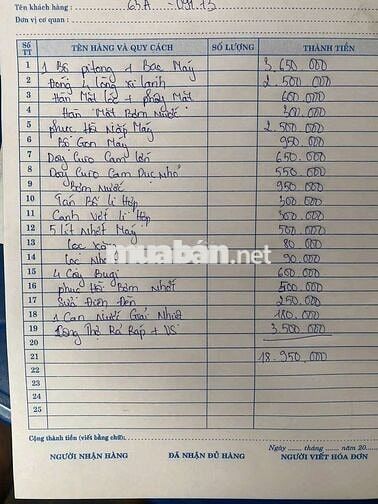 Tên khách hàng : 63A - 091.13
Đơn vị cơ quan :
Số TT TÊN HÀNG VÀ QUY CÁCH SỐ LƯỢNG THÀNH TIỀN
1 1 Bộ pitong + Bạc Máy 3.650.000
2 Đóng 4 lòng xi lanh 2.500.000
3 Hàn Mặt lốc + phay Mặt 600.000
4 Hàn Mặt Bơm Nước 300.000
5 phục Hồi Nắp Máy 2.500.000
6 Bộ Gon Máy 950.000
7 Day Curo Cam lớn 650.000
8 Day Curo Cam Dục Nhỏ 550.000
9 Bơm Nước 950.000
10 Tán Bố li Hợp 300.000
11 Canh Vớt li Hợp 300.000
12 5 lít Nhớt Máy 500.000
13 lọc Xă 80.000
14 lọc Nhớt 90.000
muaban.net
15 4 Cây Bugi 600.000
16 phục Hồi Bơm Nhớt 500.000
17 Sửa Điện Đèn 250.000
18 1 Can Nước Giải Nhiệt 180.000
19 Công Thợ Rả Ráp + VS 3.500.000
20
21 18.950.000
22
23
24
25
Cộng thành tiền (viết bằng chữ):
Ngày ...... tháng ...... năm 20....
NGƯỜI NHẬN HÀNG ĐÃ NHẬN ĐỦ HÀNG NGƯỜI VIẾT HÓA ĐƠN